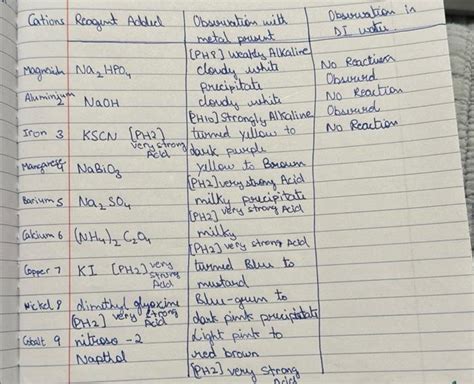 Cations Reagent Added Observation with metal present Observation in DI water
[PH8] weakly Alkaline
Magnesium Na2HPO4 cloudy white No Reaction
precipitate Observed
Aluminium 2 NaOH cloudy white No Reaction
[PH10] Strongly Alkaline Observed
Iron 3 KSCN [PH2] turned yellow to No Reaction
very strong Acid dark purple
Manganese 4 NaBiO3 yellow to Brown
[PH2] very strong Acid
Barium 5 Na2SO4 milky precipitate
[PH2] very strong Acid
Calcium 6 (NH4)2C2O4 milky
[PH2] very strong Acid
Copper 7 KI [PH2] very strong Acid turned Blue to
mustard
Nickel 8 dimethyl glyoxime Blue-green to
[PH2] very strong Acid dark pink precipitate
Cobalt 9 nitroso-2 Light pink to
Napthol red brown
[PH2] very strong
Acid